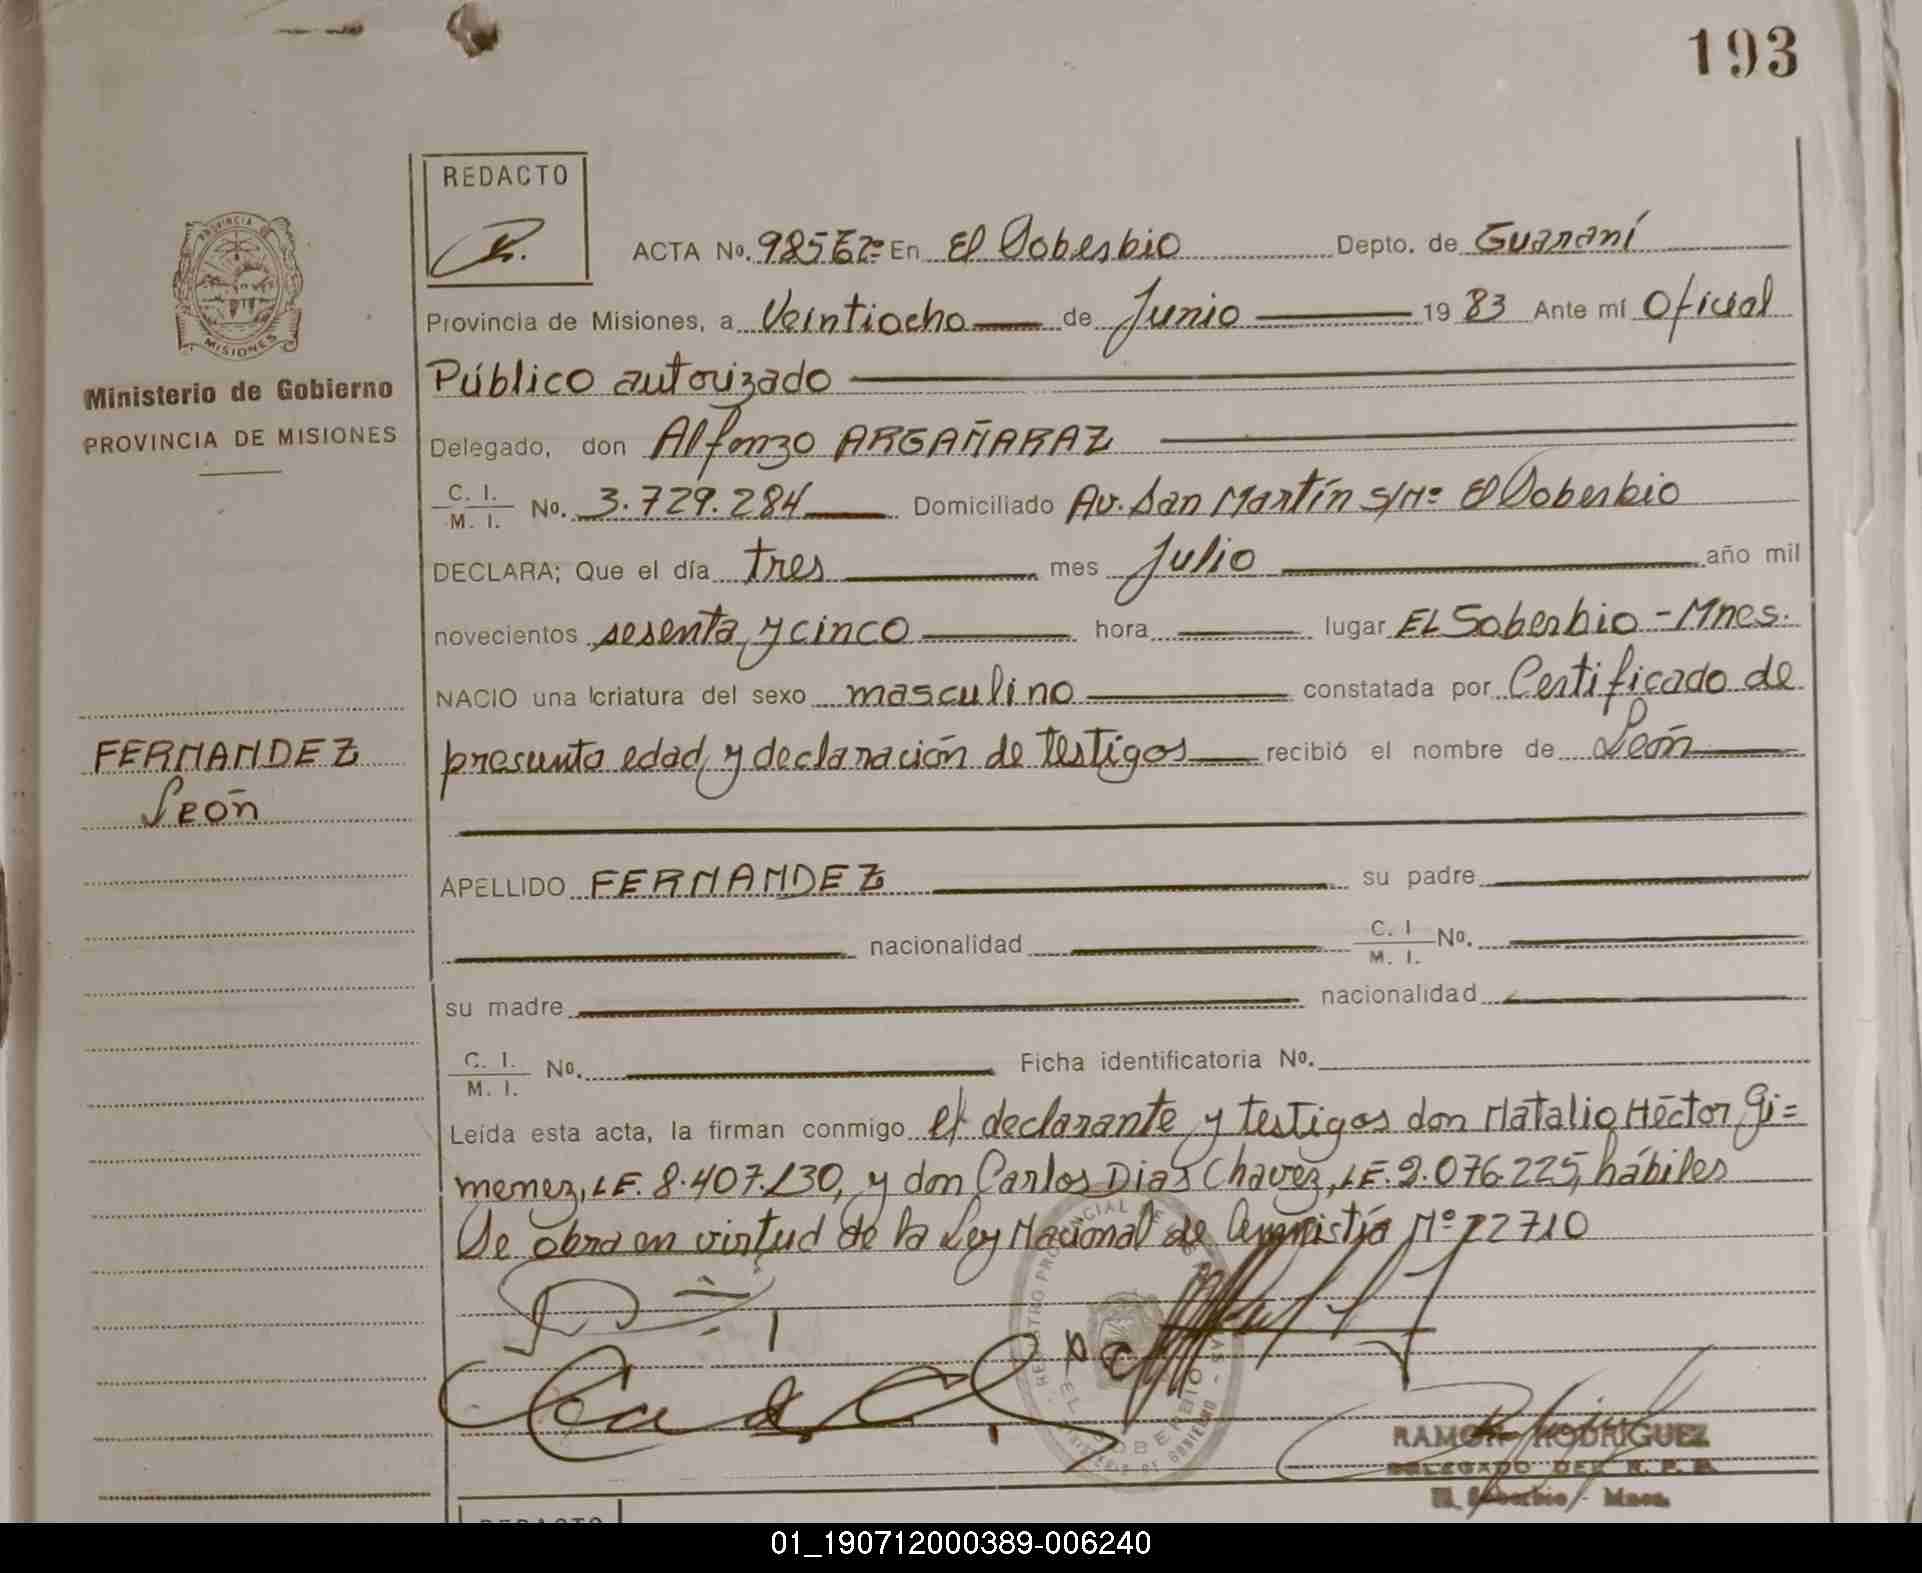 193
REDACTO
PROVINCIA DE
MISIONES
Ministerio de Gobierno
PROVINCIA DE MISIONES
ACTA No. En El Soberbio Depto. de Guaraní
Provincia de Misiones, a Veintiocho de Junio 19 83 Ante mí Oficial
Público autorizado
Delegado, don Alfonzo ARGAÑARAZ
C. I.
M. I. No. 3.729.284 Domiciliado Av. San Martín S/Nº El Soberbio
DECLARA; Que el día tres mes Julio año mil
novecientos sesenta y cinco hora lugar EL Soberbio - Mnes.
NACIO una criatura del sexo masculino constatada por Certificado de
presunta edad y declaración de testigos recibió el nombre de León
FERNANDEZ
León
APELLIDO FERNANDEZ su padre
nacionalidad C. I. M. I. No.
su madre nacionalidad
C. I.
M. I. No. Ficha identificatoria No.
Leída esta acta, la firman conmigo el declarante y testigos don Natalio Héctor Gi=
menez, LE. 8.407.130, y don Carlos Dias Chavez, LE. 2.076.225, hábiles
Se obra en virtud de la Ley Nacional de Amnistía Nº 22710
RAMON RODRIGUEZ
DELEGADO DEL R. P. P.
El Soberbio - Mnes.
REDACTO
01_190712000389-006240